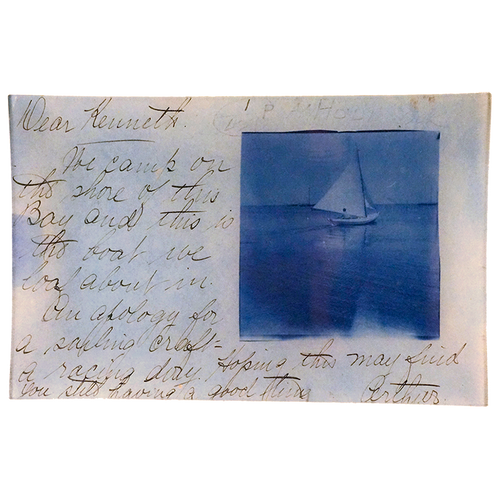 Dear Kenneth.
We camp on
the shore of this
Bay and this is
the boat we
loaf about in.
An apology for
a sailing craft-
a racing dory. Hoping this may find
you still having a good thing
Arthur